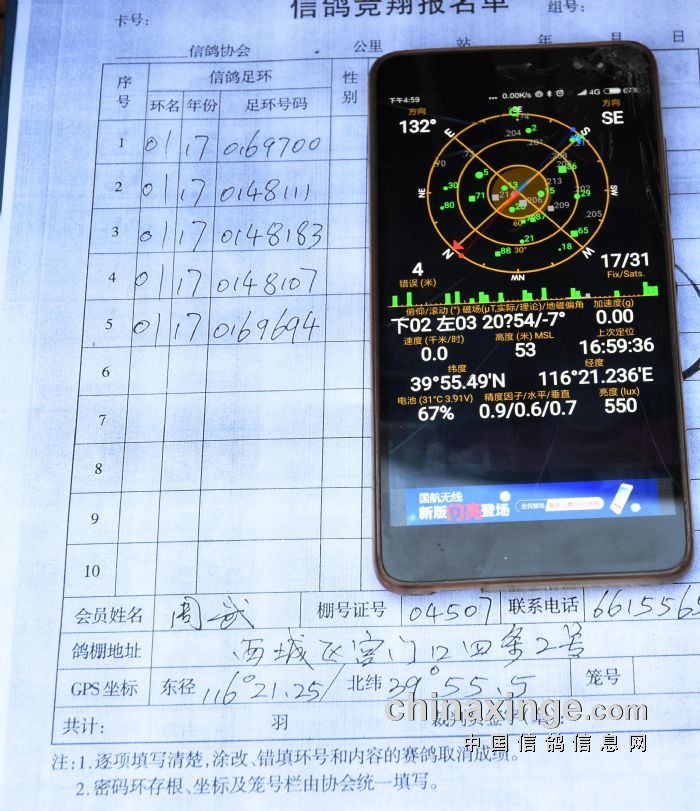 信鸽竞翔报名单
卡号: 组号:
信鸽协会 公里 站 年 月 日
序号 信鸽足环 性别
环名 年份 足环号码
1 01 17 0169700
2 01 17 0148111
3 01 17 0148183
4 01 17 0148107
5 01 17 0169694
6
7
8
9
10
会员姓名 周武 棚号证号 04507 联系电话 6615565
鸽棚地址 西城区宫门口四条2号
GPS坐标 东径 116°21.25/ 北纬 39°55.5 笼号
共计: 羽 裁判员签字
注:1.逐项填写清楚,涂改、错填环号和内容的赛鸽取消成绩。
2.密码环存根、坐标及笼号栏由协会统一填写。
下午4:59 ... 0.00K/s 4G 67%
方向 方向
132° SE
SE
E S
NE SW
N W
NW
74
204 2
201
21
70 73
5 86
208
203
30 13 213 202
71 214 15 29
206
80 28 209 205
60° 87
21 65
88 18
30°
4 17/31
错误 (米) Fix/Sats.
俯仰/滚动 (°) 磁场(µT,实际/理论)/地磁偏角 加速度(g)
下02 左03 20?54/-7° 0.00
速度 (千米/时) 高度 (米) MSL 上次定位
0.0 53 16:59:36
纬度 经度
39°55.49'N 116°21.236'E
电池 (31°C 3.91V) 精度因子/水平/垂直 亮度 (lux)
67% 0.9/0.6/0.7 550
国航无线
新版闪亮登场
chinaxinge.com
中国信鸽信息网